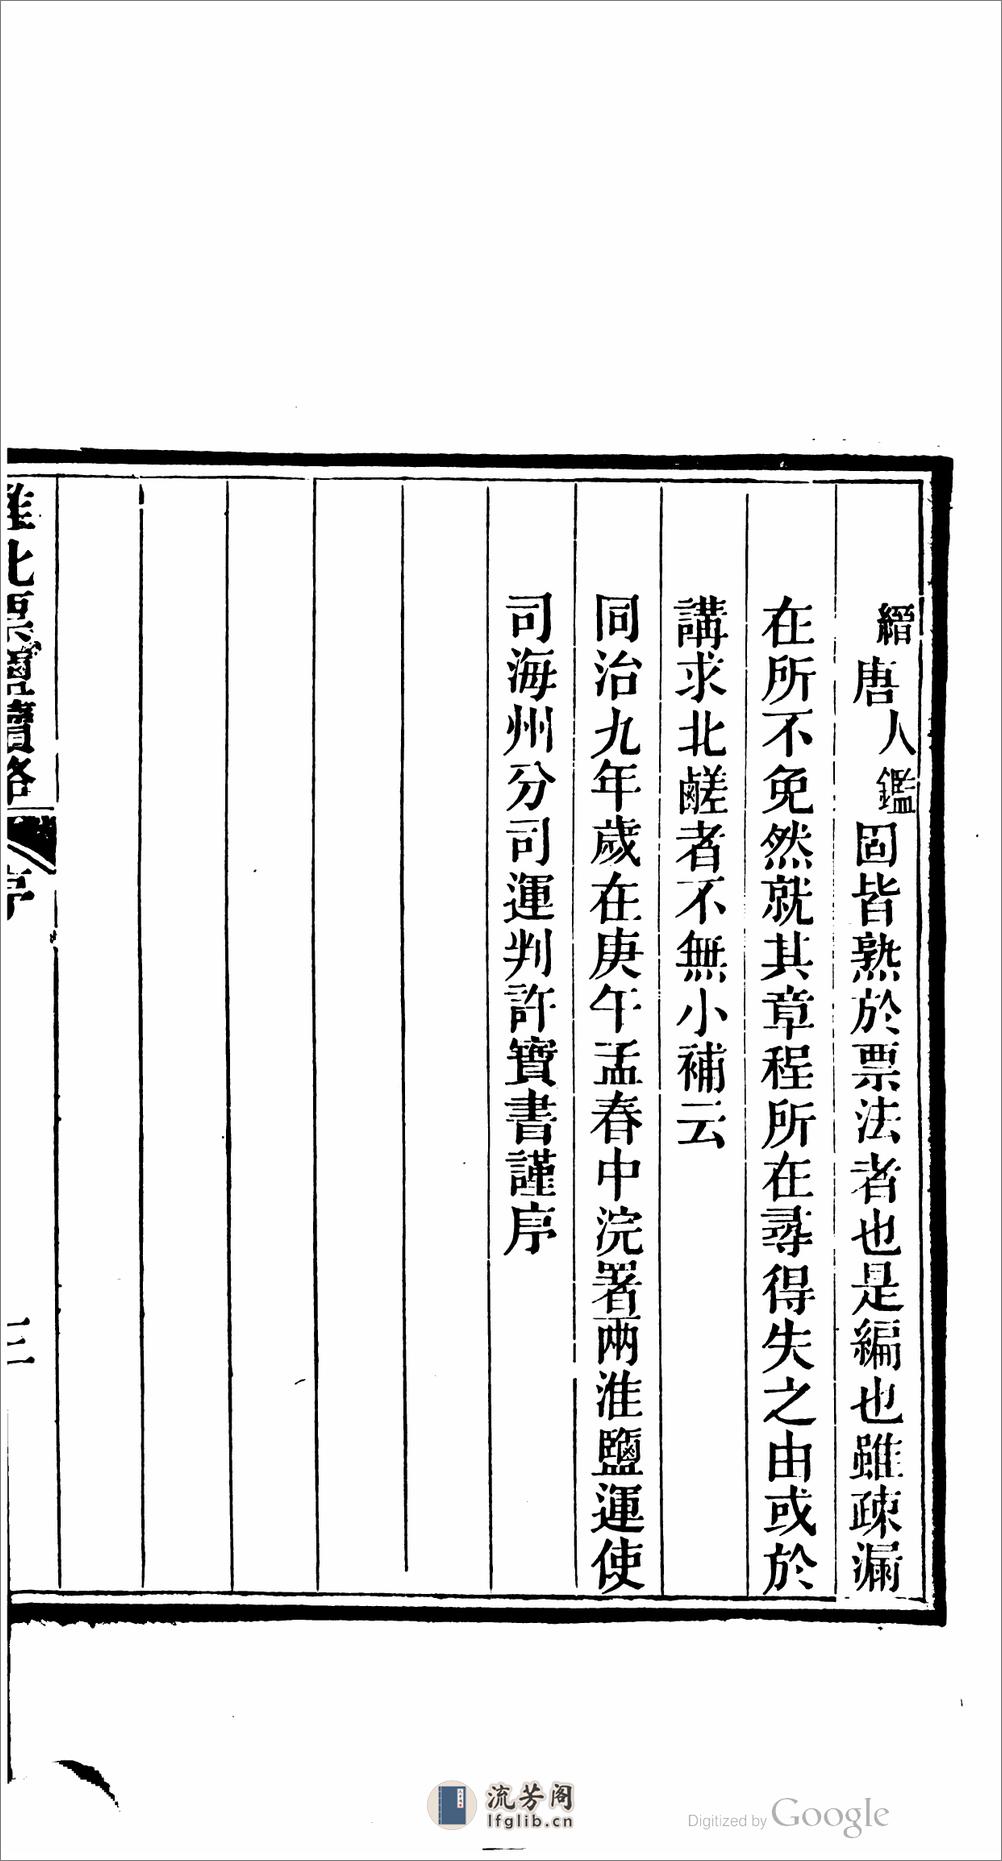 縉唐人鑑固皆熟於票法者也是編也雖疎漏
在所不免然就其章程所在尋得失之由或於
講求北鹺者不無小補云
同治九年歲在庚午孟春中浣署兩淮鹽運使
司海州分司運判許寶書謹序
淮北票鹽續略
序
三
流芳阁
lfglib.cn
Digitized by Google